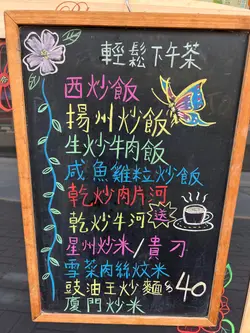 輕鬆下午茶
西炒飯
揚州炒飯
生炒牛肉飯
咸魚雞粒炒飯
乾炒肉片河
乾炒牛河 送
星州炒米/貴刁
雪菜肉絲炆米
豉油王炒麵 $40
廈門炒米